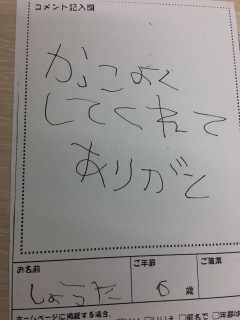 コメント記入欄
かっこよく
してくれて
ありがと
お名前
ご年齢
ご職業
しょうた
6
歳
ホームページに掲載する場合、